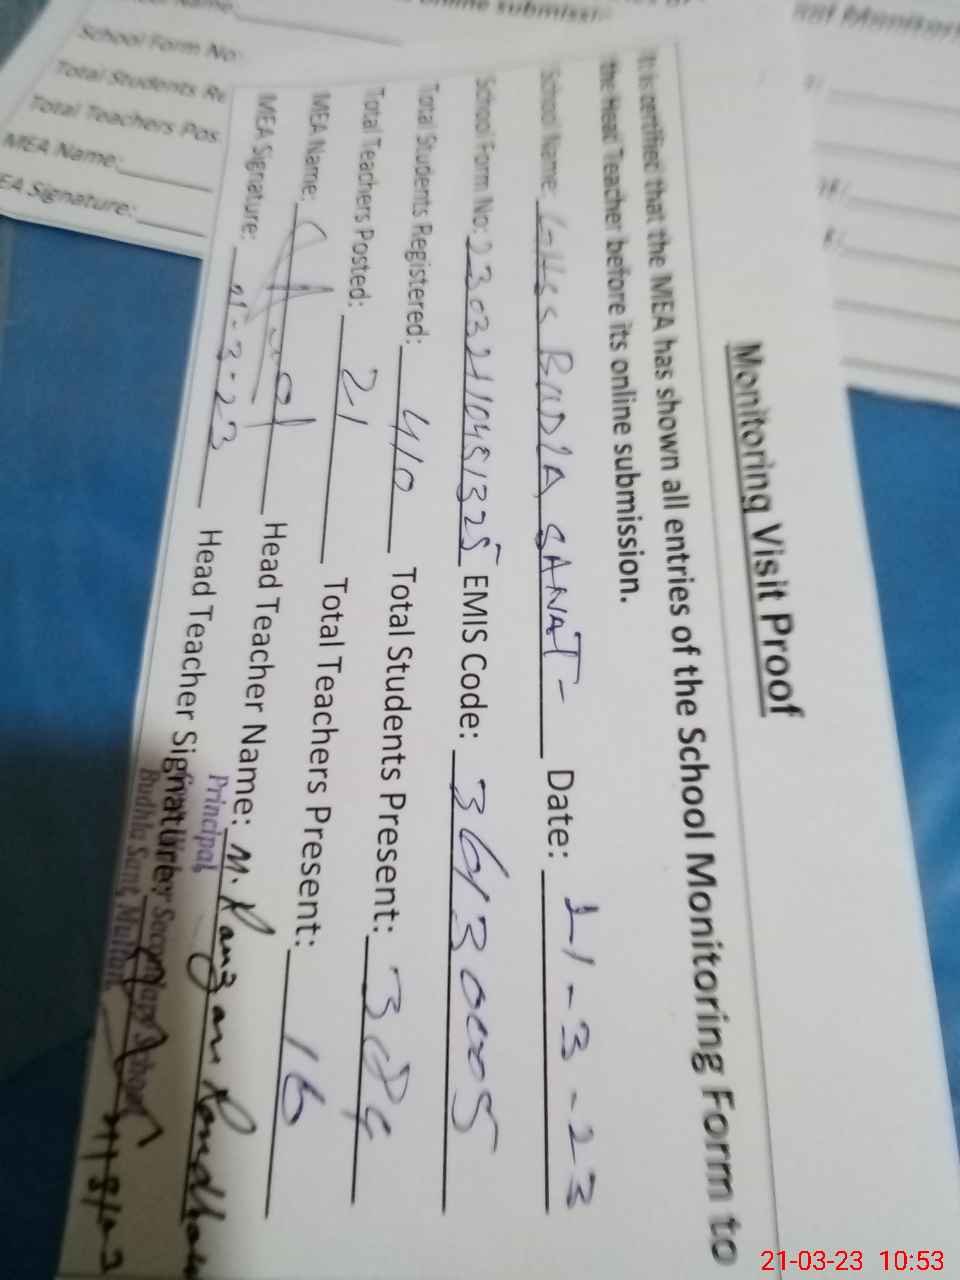 Monitoring Visit Proof
It is certified that the MEA has shown all entries of the School Monitoring Form to
the Head Teacher before its online submission.
School Name: GHSS BUDLA SANAT Date: 21-3-23
School Form No: 23032110451325 EMIS Code: 36130005
Total Students Registered: 410 Total Students Present: 384
Total Teachers Posted: 21 Total Teachers Present: 16
MEA Name: Head Teacher Name: M. Ramzan
MEA Signature: 21-3-23 Head Teacher Signature:
Principal
Secondary School
Budhla Sant, Multan
School Form No:
Total Students Re
Total Teachers Pos
MEA Name:
EA Signature:
21-03-23 10:53